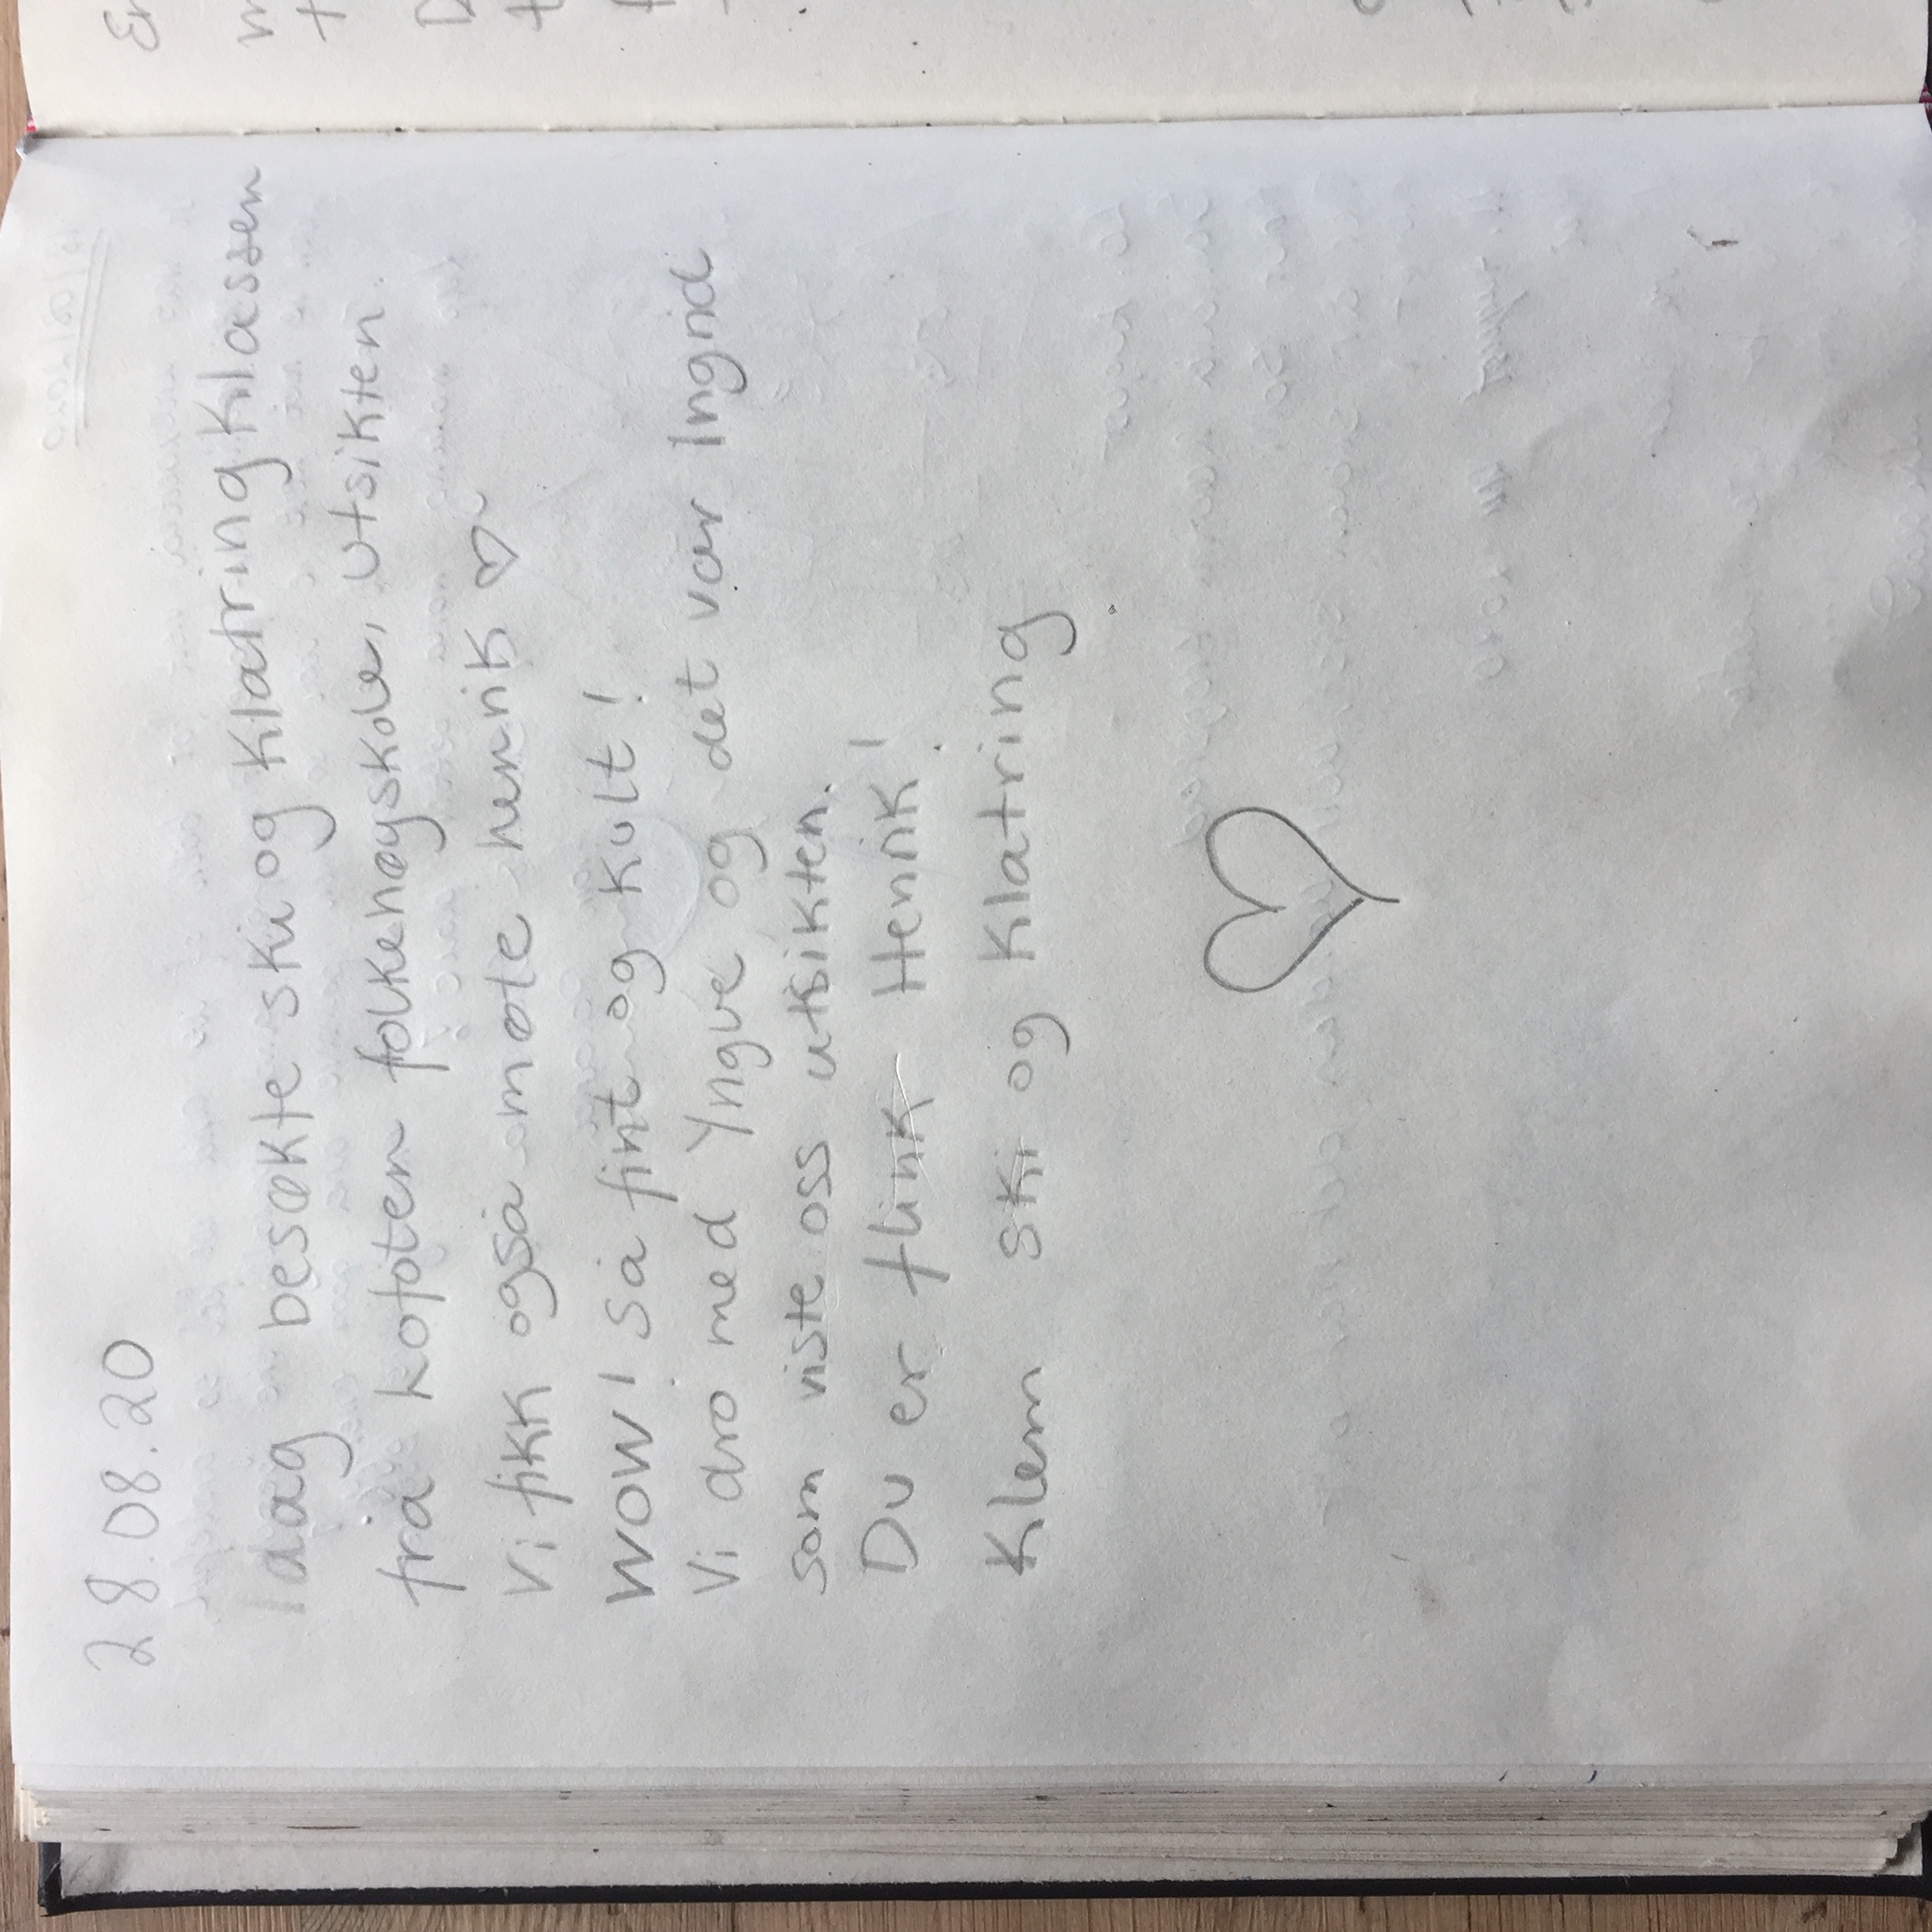 28.08.20
I dag besøkte ski og klatring klassen
fra Lofoten folkehøyskole, utsikten.
Vi fikk også møte henrik ♡
WOW! Så fint og kult!
Vi dro med Yngve og det var Ingrid
som viste oss utsikten.
Du er flink Henrik!
Klem Ski og Klatring
♡